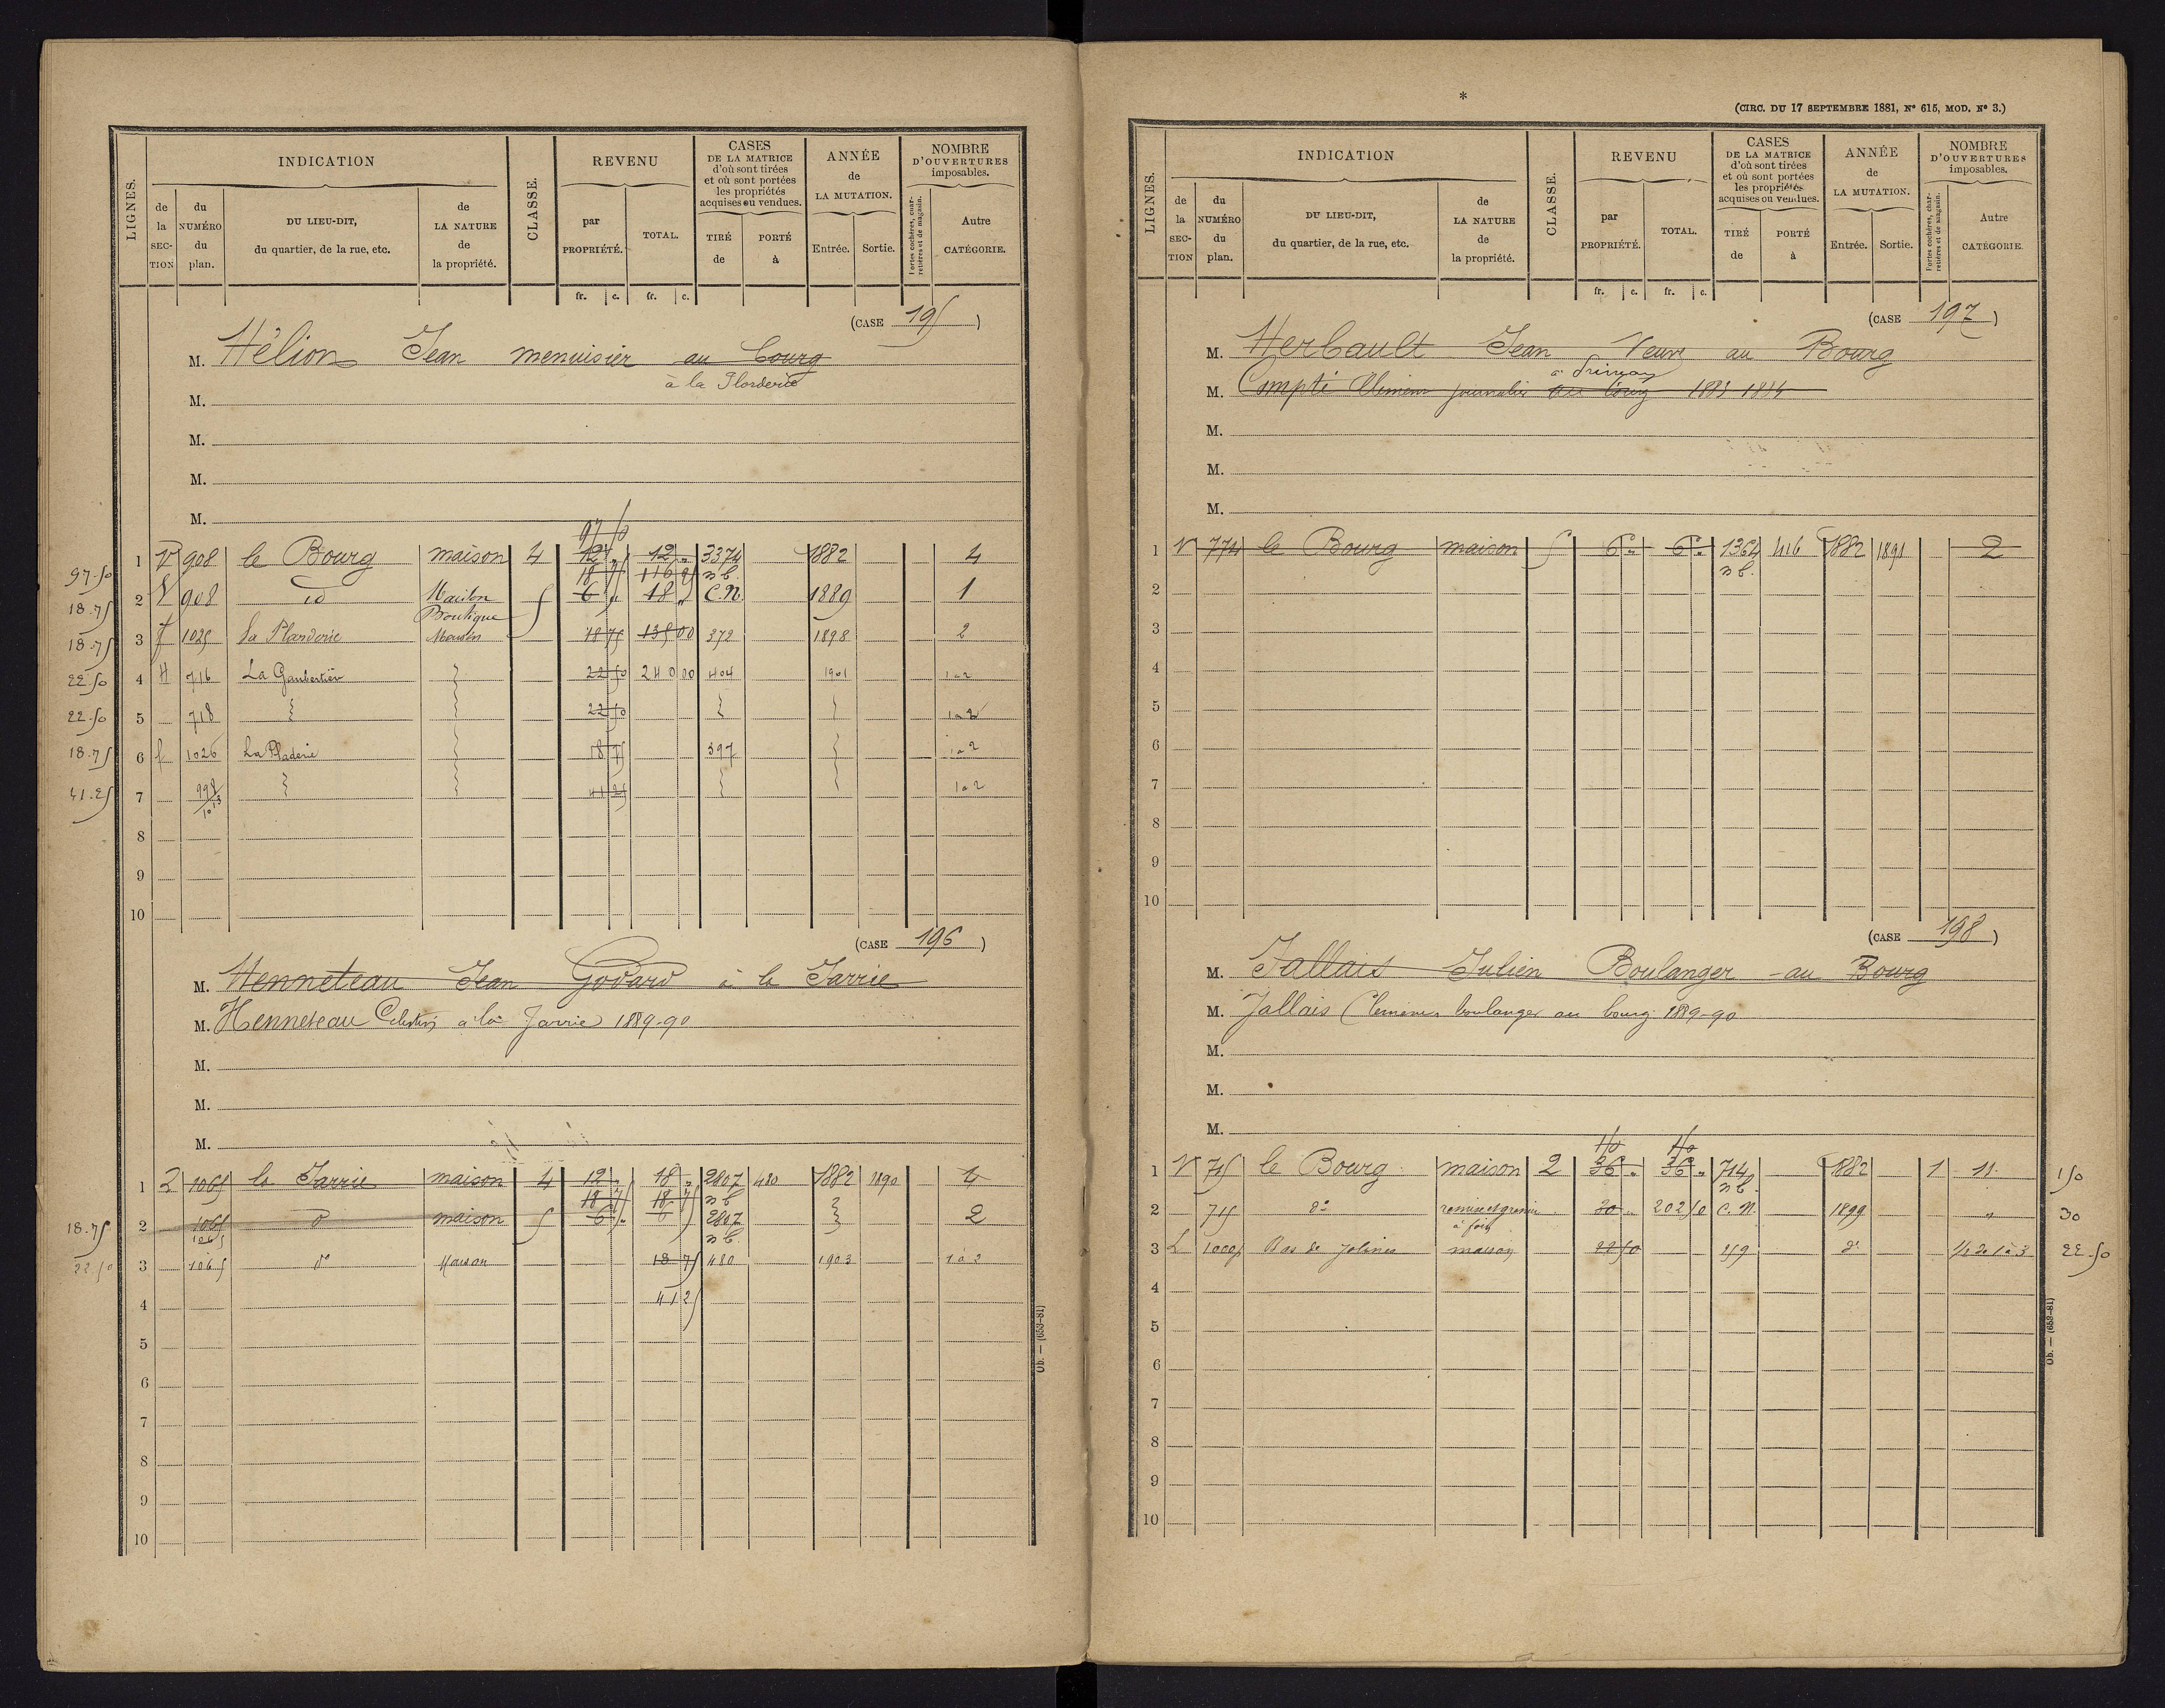 LIGNES.
INDICATION
de la SECTION
du NUMÉRO du plan.
DU LIEU-DIT, du quartier, de la rue, etc.
de LA NATURE de la propriété.
CLASSE.
REVENU
par PROPRIÉTÉ.
TOTAL.
CASES DE LA MATRICE d'où sont tirées et où sont portées les propriétés acquises ou vendues.
TIRÉ de
PORTÉ à
ANNÉE de LA MUTATION.
Entrée.
Sortie.
NOMBRE D'OUVERTURES imposables.
Portes cochères, charretières et de magasin.
Autre CATÉGORIE.
fr. c. fr. c.
(CASE 195)
M. Hélion Jean menuisier au bourg
à la Plorderie
M.
M.
M.
M.
97 50
1 V 908 le Bourg maison 4 12 " 12 " 3374 1882 4
97.50
18 75 116 25 n b.
2 V 908 id Maison 5 6 " 18 " C.N. 1889 1
Boutique
18.75
3 f 1025 La Plarderie Maison 18 75 135 00 372 1898 2
18.75
4 H 716 La Gaubertière 22 50 240 00 404 1901 1 à 2
22.50
5 718 22 50 1 à 2
22.50
6 f 1026 La Pladerie 18 75 397 1 à 2
18.75
7 998/1013 41 25 1 à 2
41.25
8
9
10
(CASE 196)
M. Henneteau Jean Godard à la Jarrie
M. Henneteau Célestin à la Jarrie 1889-90
M.
M.
M.
1 2 1065 la Jarrie maison 4 12 " 18 " 2807 480 1882 1890 4
18 75 18 75 n b
2 1065 do maison 5 6 " 6 2807 2
18.75
1065 n b.
3 1065 do Maison 18 75 480 1903 1 à 2
22.50
4 41 25
5
6
7
8
9
10
Ob. — (653-81)
*
(CIRC. DU 17 SEPTEMBRE 1881, N° 615, MOD. N° 3.)
LIGNES.
INDICATION
de la SECTION
du NUMÉRO du plan.
DU LIEU-DIT, du quartier, de la rue, etc.
de LA NATURE de la propriété.
CLASSE.
REVENU
par PROPRIÉTÉ.
TOTAL.
CASES DE LA MATRICE d'où sont tirées et où sont portées les propriétés acquises ou vendues.
TIRÉ de
PORTÉ à
ANNÉE de LA MUTATION.
Entrée.
Sortie.
NOMBRE D'OUVERTURES imposables.
Portes cochères, charretières et de magasin.
Autre CATÉGORIE.
fr. c. fr. c.
(CASE 197)
M. Herbault Jean Veuve au Bourg
M. Compti Clément journalier au bourg 1883 1884
M.
M.
M.
1 V 774 le Bourg maison 5 6 " 6 " 1364 416 1882 1891 2
n b.
2
3
4
5
6
7
8
9
10
(CASE 198)
M. Jallais Julien Boulanger au Bourg
M. Jallais Clémence boulanger au bourg 1889-90
M.
M.
M.
150 150
1 V 715 le Bourg maison 2 36 " 36 " 714 1882 1 11
150
n b.
2 715 do remise et grenier 30 " 202 50 C.N. 1899 "
30
à foin
3 L 1000 Bas de maison 22 50 259 do 1/2 de 1 à 3
22.50
4
5
6
7
8
9
10
Ob. — (653-81)